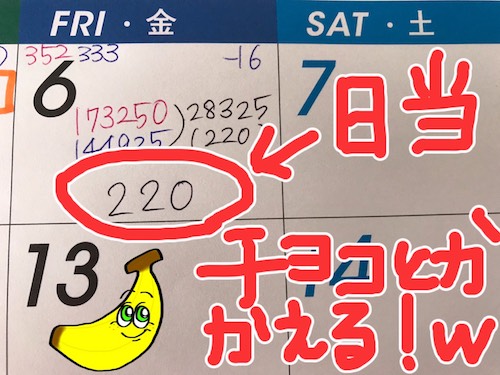 FRI・金
SAT・土
352 333 -16
6
7
173250)28325
144925)(220)
220
日当
13
14
チョコとか
かえる！w